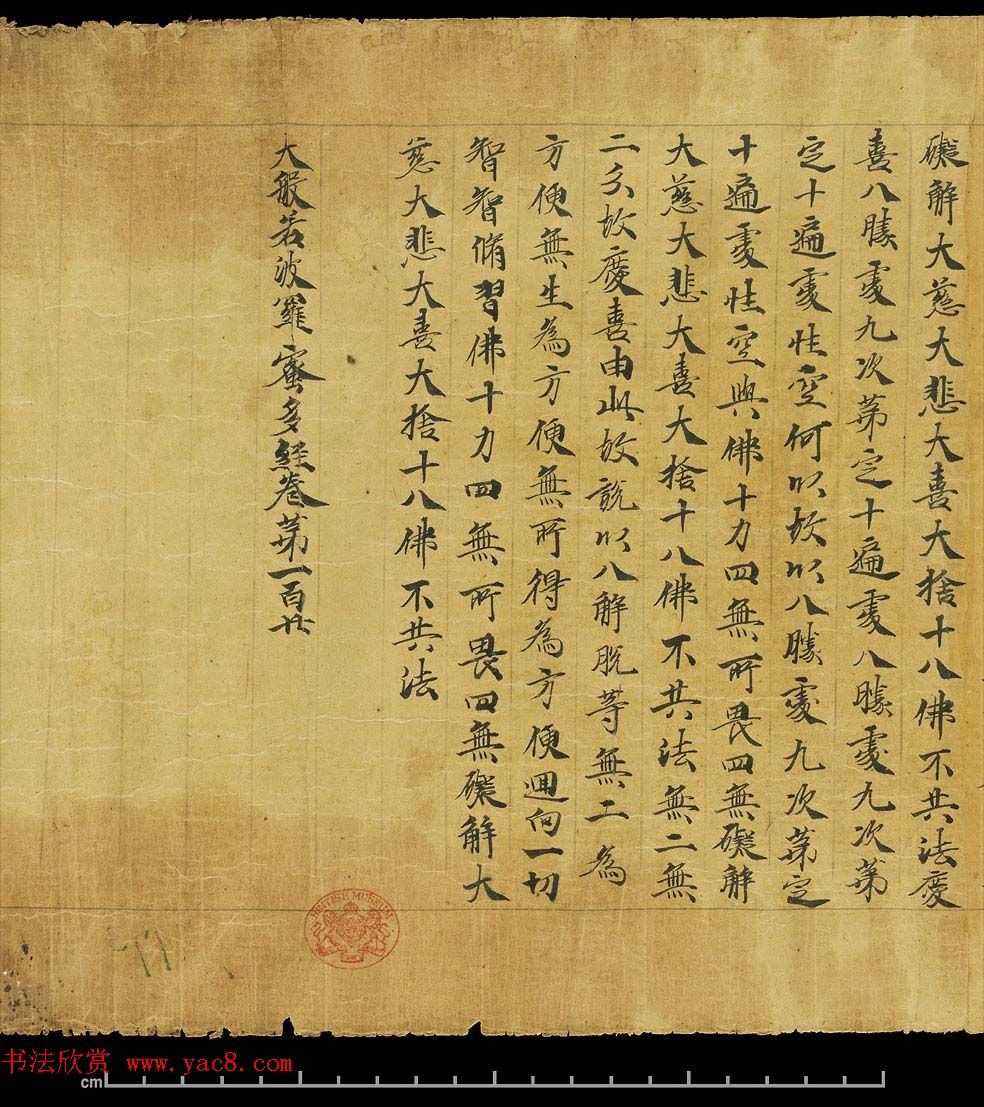 礙解大慈大悲大喜大捨十八佛不共法慶
喜八勝處九次第定十遍處八勝處九次第
定十遍處性空何以故以八勝處九次第定
十遍處性空與佛十力四無所畏四無礙解
大慈大悲大喜大捨十八佛不共法無二無
二分故慶喜由此故說以八解脫等無二為
方便無生為方便無所得為方便迴向一切
智智脩習佛十力四無所畏四無礙解大
慈大悲大喜大捨十八佛不共法
大般若波羅蜜多經卷第一百廿
BRITISH MUSEUM
书法欣赏 www.yac8.com
cm